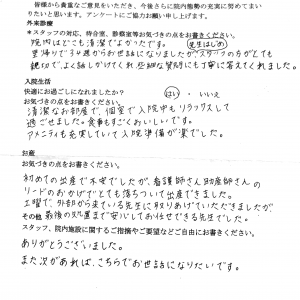 皆様から貴重なご意見をいただき、今後さらに院内態勢の充実に努めてまい
りたいと思います。アンケートにご協力お願い申し上げます。
外来診療
＊スタッフの対応、待合室、診察室等お気づきの点をお書きください。
院内はどこも清潔でよかったです。 先生はじめ
里帰りで34週からお世話になりましたが、スタッフの方がとても
親切で、よく話しかけてくれ、些細な質問にも丁寧に答えてくれました。
入院生活
快適にお過ごしになれましたか？ はい ・ いいえ
お気づきの点をお書きください。
清潔なお部屋で、個室で入院中もリラックスして
過ごせました。食事もすごくおいしいです。
アメニティも充実していて入院準備が楽でした。
お産
お気づきの点をお書きください。
初めての出産で不安でしたが、看護師さん助産師さんの
リードのおかげでとても落ちついて出産できました。
土曜で、外部から来ている先生に取りあげていただきましたが
その他 最後の処置まで安心してお任せできる先生でした。
スタッフ、院内施設に関するご指摘やご要望などご自由にお書きください。
ありがとうございました。
また次があれば、こちらでお世話になりたいです。